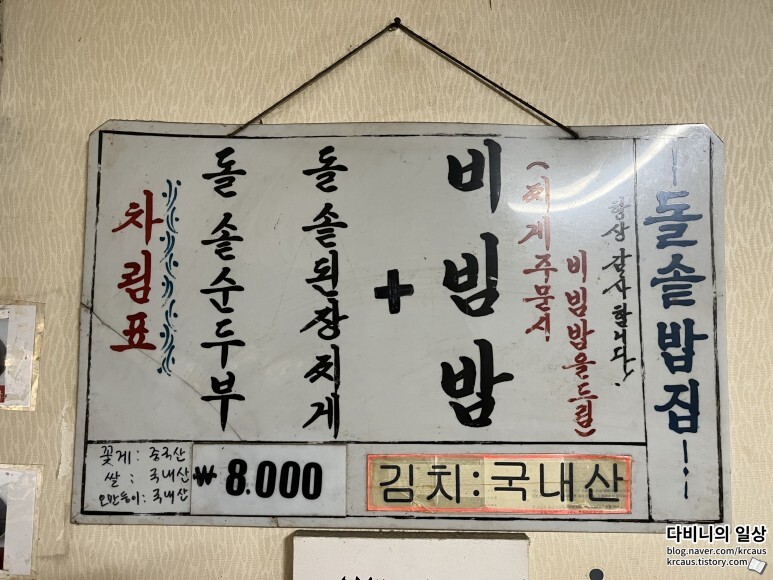 차림표
돌솥순두부
돌솥된장찌게
+
비빔밥
(찌게주문시
비빔밥을드림)
항상 감사합니다!
돌솥밥집
꽃게: 중국산
쌀: 국내산
오만둥이: 국내산
₩ 8.000
김치:국내산
다비니의 일상
blog.naver.com/krcaus
krcaus.tistory.com